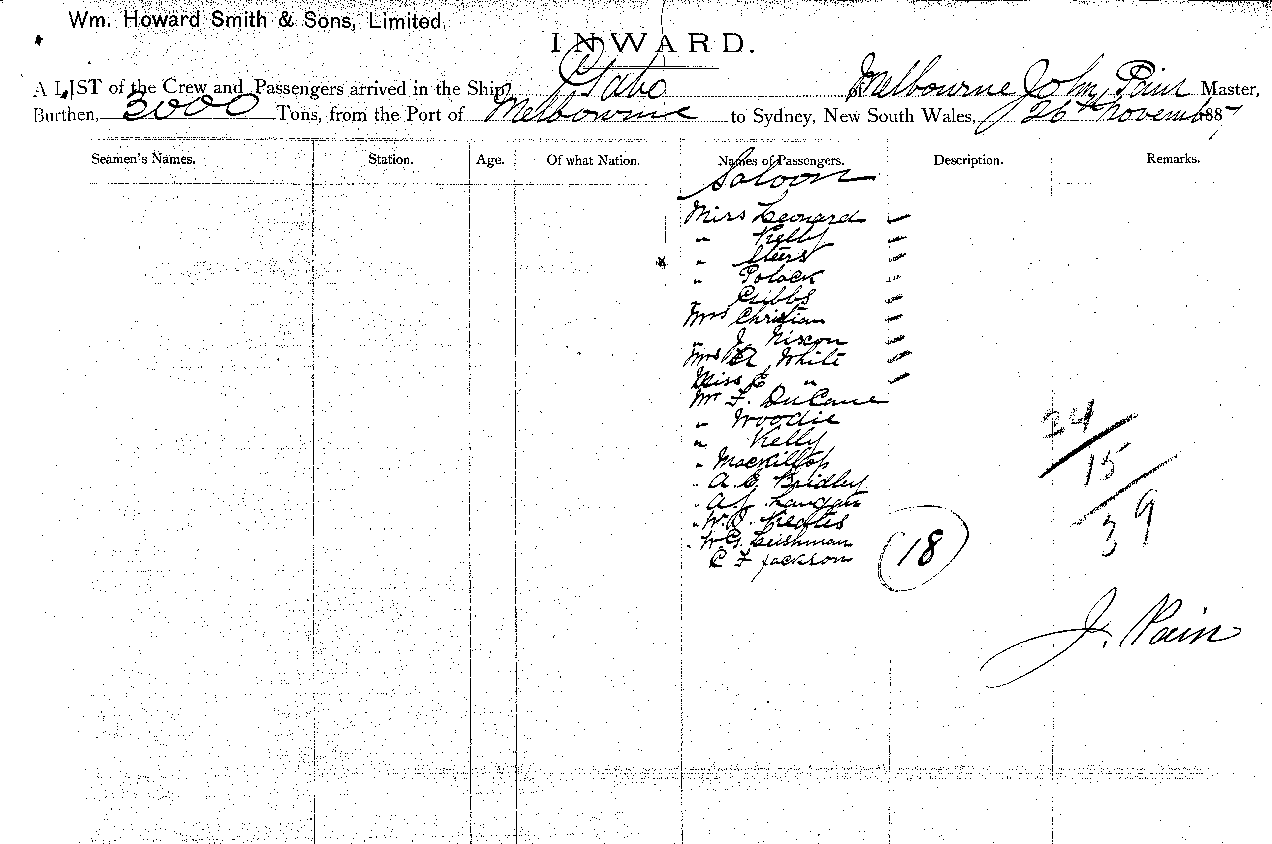 Wm. Howard Smith & Sons, Limited.
INWARD.
A LIST of the Crew and Passengers arrived in the Ship Gabo of Melbourne John Pain Master,
Burthen, 3000 Tons, from the Port of Melbourne to Sydney, New South Wales, 26th November 1887
Seamen's Names. Station. Age. Of what Nation. Names of Passengers. Description. Remarks.
Saloon
Miss Leonard
" Kelly
"
" Polack
" Gibbs
Mrs Christian
" J. Nixon
Mrs White
Miss E "
Mr F. DuCane
" Woodie
" Kelly
" MacKillop
" A. G. Bridley
" A J. Langan
" W. J. Keates
" W G. Leishman
C F Jackson
18
24
15
39
J. Pain